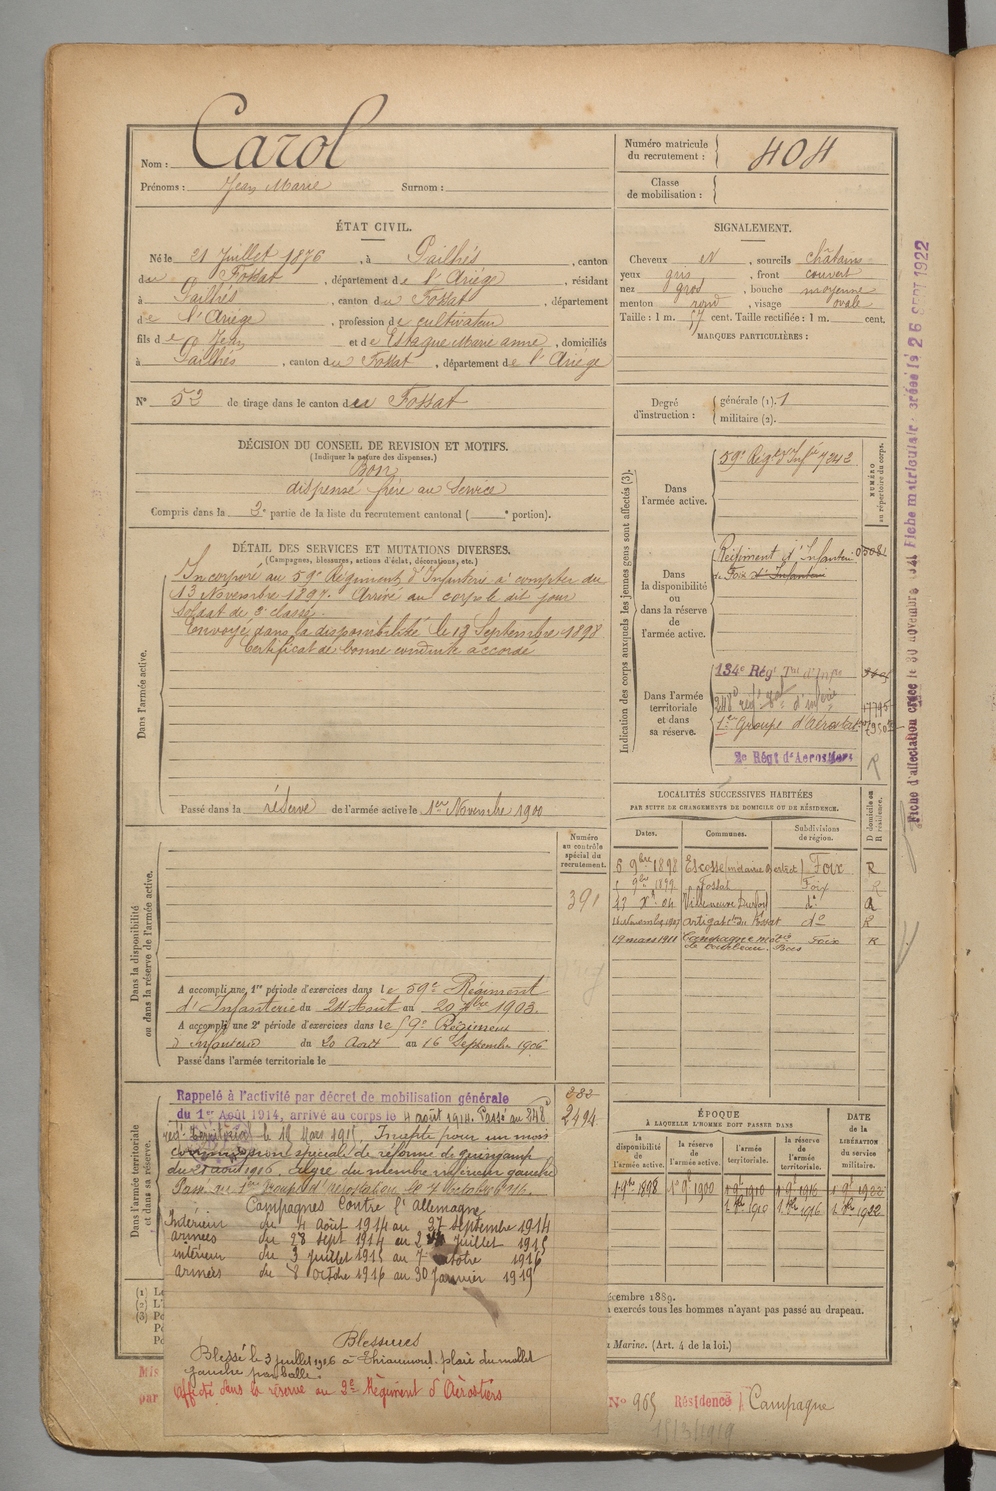 Nom : Carol
Prénoms : Jean Marie Surnom :
Numéro matricule du recrutement : 404
Classe de mobilisation :
ÉTAT CIVIL.
Né le 21 Juillet 1876, à Pailhés, canton
du Fossat, département de l'Ariége, résidant
à Pailhés, canton du Fossat, département
de l'Ariége, profession de cultivateur
fils de Jean et de Estaque Marie anne, domiciliés
à Pailhés, canton du Fossat, département de l'Ariége
N° 53 de tirage dans le canton du Fossat
SIGNALEMENT.
Cheveux N, sourcils châtains
yeux gris, front couvert
nez gros, bouche moyenne
menton rond, visage ovale
Taille : 1 m. 57 cent. Taille rectifiée : 1 m. cent.
MARQUES PARTICULIÈRES :
Degré d'instruction : générale (1). 1
militaire (2).
DÉCISION DU CONSEIL DE REVISION ET MOTIFS.
(Indiquer la nature des dispenses.)
Bon
dispensé frère au service
Compris dans la 3e partie de la liste du recrutement cantonal ( e portion).
DÉTAIL DES SERVICES ET MUTATIONS DIVERSES.
(Campagnes, blessures, actions d'éclat, décorations, etc.)
Dans l'armée active.
Incorporé au 59e Régiment d'Infanterie à compter du
13 Novembre 1897. Arrivé au corps le dit jour
Soldat de 2e classe.
Envoyé dans la disponibilité le 19 Septembre 1898
Certificat de bonne conduite accordé
Passé dans la réserve de l'armée active le 1er Novembre 1900
Indication des corps auxquels les jeunes gens sont affectés (3).
NUMÉRO au répertoire du corps.
Dans l'armée active.
59e Régt d'Infie 7242
Dans la disponibilité ou dans la réserve de l'armée active.
Régiment d'Infanterie
de Foix d'Infanterie
Dans l'armée territoriale et dans sa réserve.
134e Régt Tal d'Infie
248e regt d'infie
1er Groupe d'Aérostat.
2e Régt d'Aerostiers
R
Fiche d'affectation créée le 30 novembre Fiche matriculaire créée le 26 SEPT 1922
LOCALITÉS SUCCESSIVES HABITÉES
PAR SUITE DE CHANGEMENTS DE DOMICILE OU DE RÉSIDENCE.
Dates. Communes. Subdivisions de région. D domicile ou R résidence.
6 9bre 1898 Escosse Foix R
9bre 1899 Fossat Foix R
23 Xbre 04 Villeneuve Durfort do R
Novembre 1907 Artigat Ct du Fossat do R
19 mars 1911 Campagne Foix R
Dans la disponibilité ou dans la réserve de l'armée active.
Numéro au contrôle spécial du recrutement.
391
A accompli une 1re période d'exercices dans le 59e Régiment
d'Infanterie du 24 Août au 20 7bre 1903.
A accompli une 2e période d'exercices dans le 59e Régiment
d'Infanterie du 20 Août au 16 Septembre 1906
Passé dans l'armée territoriale le
Dans l'armée territoriale et dans sa réserve.
2494
Rappelé à l'activité par décret de mobilisation générale
du 1er Août 1914, arrivé au corps le 4 août 1914. Passé au 248e
regt le 18 Mars 1915, Inapte pour un mois
commission spéciale de réforme de Guingamp
du 21 août 1916. du membre inférieur gauche
Pass. au 1er groupe d'aérostation le 7 octobre 1916.
Campagnes Contre l'Allemagne
Intérieur du 4 août 1914 au 27 septembre 1914
armées du 28 sept 1914 au 2 Juillet 1915
intérieur du 3 juillet 1915 au 7 octobre 1916
armées du 8 octobre 1916 au 30 Janvier 1919
Blessures
Blessé le 3 juillet 1916 à Thiaumont. plaie du mollet
gauche par balle.
Affecté dans la réserve au 2e Régiment d'Aérostiers
ÉPOQUE
À LAQUELLE L'HOMME DOIT PASSER DANS
DATE de la LIBÉRATION du service militaire.
la disponibilité de l'armée active. la réserve de l'armée active. l'armée territoriale. la réserve de l'armée territoriale.
1 9bre 1898 1 9bre 1900 1 9bre 1910 1 9bre 1916 1 9bre 1922
1 8bre 1910 1 8bre 1916 1 8bre 1922
écembre 1889.
exercés tous les hommes n'ayant pas passé au drapeau.
Marine. (Art. 4 de la loi.)
Mis
par
N° 965 Résidence Campagne
15/3/1919